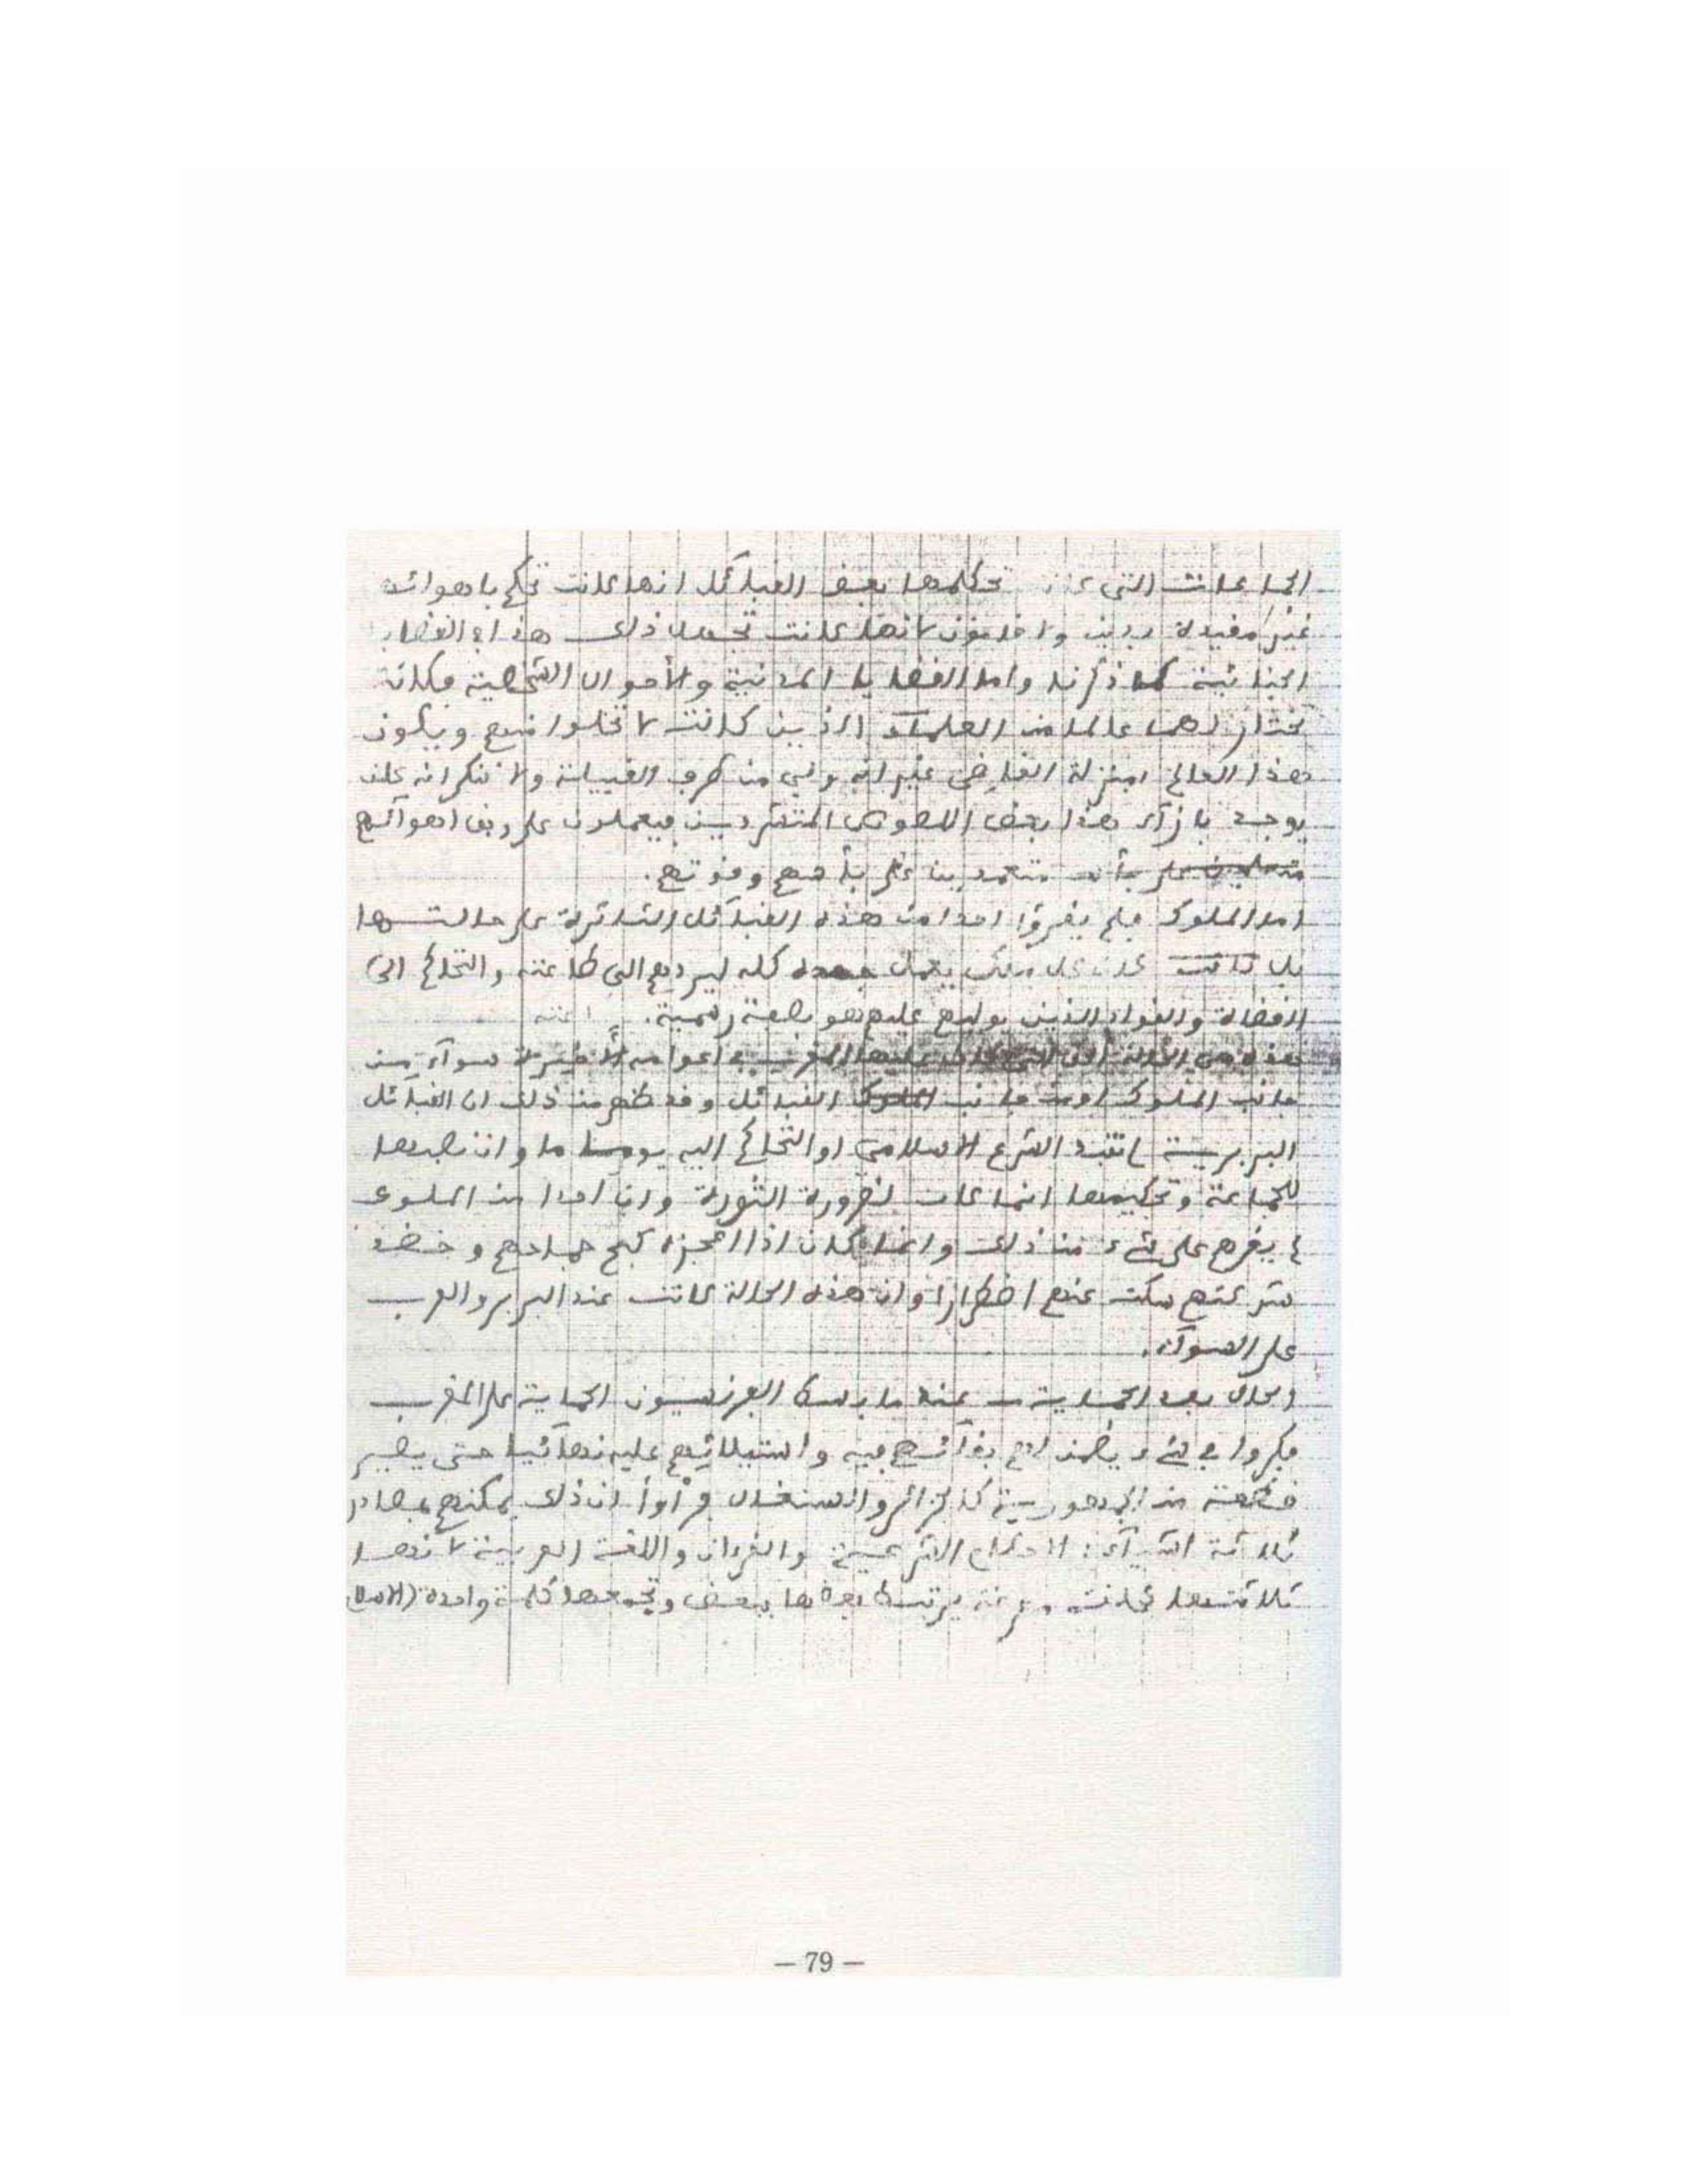 الجماعات التي تحكمها بعض القبائل انها كانت تحكم باهوائه
غير مقيدة بدين ولا خانون لانها كانت تجعل ذلك هذا في القضايا
الجنائية كما ذكرنا واما القضايا المدنية والأحوال الشخصية فكانت
تختار لهما عالما من العلماء الذين كانت لا تخلوا منهم ويكون
هذا العالم بمنزلة القاضي غير انه ولي من طرف القبيلة ولا ننكر انه كان
يوجد بازآء هذا بعض اللصوص المتشردين فيعملون على وفق اهوآئهم
معتمدين على بأسهم وقوتهم.
اما الملوك فلم يقروا احدا من هذه القبآئل الثائرة على حالتها
بل كان كل ملك يعمل جهده كله ليردهم الى طاعته والتحاكم الى
القضاة والقواد الذين يوليهم عليهم هو بصفة رسمية.
هذه هي الحالة التي كان عليها المغرب في اعوامه الأخيرة سوآء من
جانب الملوك او من جانب القبائل وقد ظهر من ذلك ان القبائل
البربرية لم تنبذ الشرع الاسلامي او التحاكم اليه يوما ما وان نصبها
للجماعة وتحكيمها انما كان لضرورة الثورة وان احدا من الملوك
لم يقرهم على شيء من ذلك وانما كان اذا اعجزه كبح جماحهم وخضد
شوكتهم سكت عنهم اضطرارا وان هذه الحالة كانت عند البربر والعرب
على السوآء.
الحال بعد الحماية — عند ما بسط الفرنسيون الحماية على المغرب
فكروا في شيء يضمن لهم بقآئهم فيه واستيلائهم عليه نهآئيا حتى يصير
قطعة من الجمهورية كالجزائر والسنغال فرأوا ان ذلك يمكنهم بمحاربة
ثلاثة اشيآء: الاحكام الشرعية والقرءان واللغة العربية لانها
ثلاثتها كانت يرتبط بعضها ببعض وتجمعها كلمة واحدة (الاسلام)
– 79 –